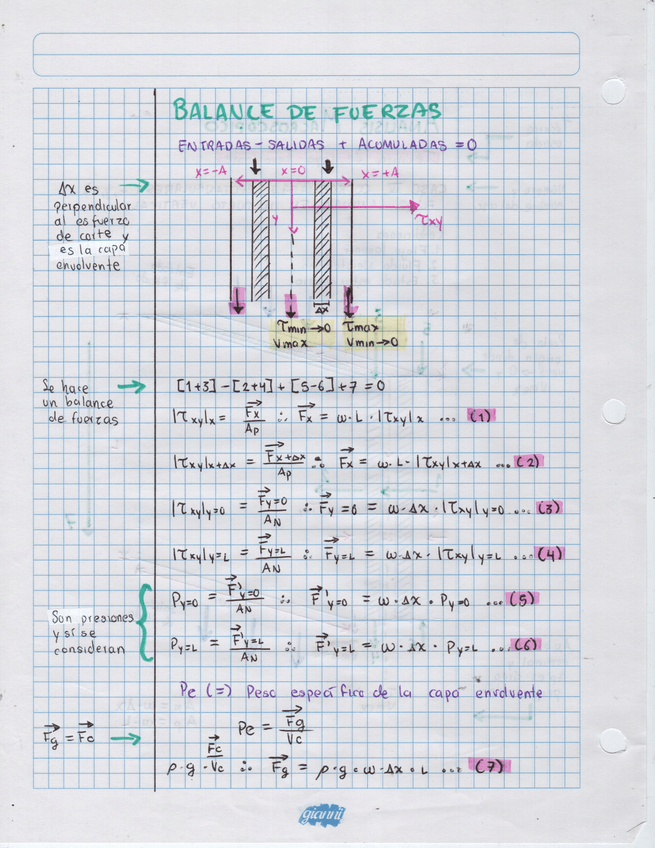 BALANCE DE FUERZAS
ENTRADAS - SALIDAS + ACUMULADAS = 0
x=-A x=0 x=+A
y
τxy
Δx es
perpendicular
al esfuerzo
de corte y
es la capa
envolvente
Δx
τmin→0 τmax
Vmax Vmin→0
Se hace
un balance
de fuerzas
[1+3]-[2+4]+[5-6]+7=0
|τxy|x = Fx/Ap ∴ Fx = ω·L·|τxy|x ... (1)
|τxy|x+Δx = Fx+Δx/Ap ∴ Fx = ω·L·|τxy|x+Δx ... (2)
|τxy|y=0 = Fy=0/AN ∴ Fy=0 = ω·Δx·|τxy|y=0 ... (3)
|τxy|y=L = Fy=L/AN ∴ Fy=L = ω·Δx·|τxy|y=L ... (4)
Son presiones
y sí se
consideran
Py=0 = F'y=0/AN ∴ F'y=0 = ω·Δx·Py=0 ... (5)
Py=L = F'y=L/AN ∴ F'y=L = ω·Δx·Py=L ... (6)
Pe (=) Peso específico de la capa envolvente
Fg = Fc
Pe = Fg/Vc
ρ·g·Fc/Vc ∴ Fg = ρ·g·ω·Δx·L ... (7)
gianni